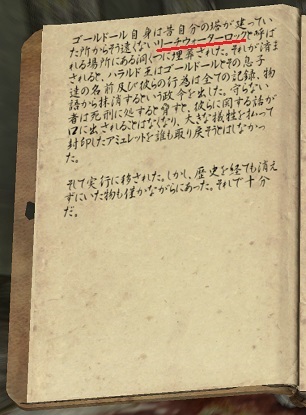 ゴールドール自身は昔自分の塔が建ってい
た所からそう遠くないリーチウォーターロックと呼ば
れる場所にある洞くつに埋葬された。それが済ま
されると、ハラルド王はゴールドールとその息子
達の名前及び彼らの行為は全ての記録、物
語から抹消するという政令を出した。守らない
者は死刑に処すると脅すと、彼らに関する話が
口に出されることはなくなり、大きな犠牲を払って
封印したアミュレットを誰も取り戻そうとはしなかっ
た。
そして実行に移された。しかし、歴史を経ても消え
ずにいた物も僅かながらにあった。それで十分
だ。